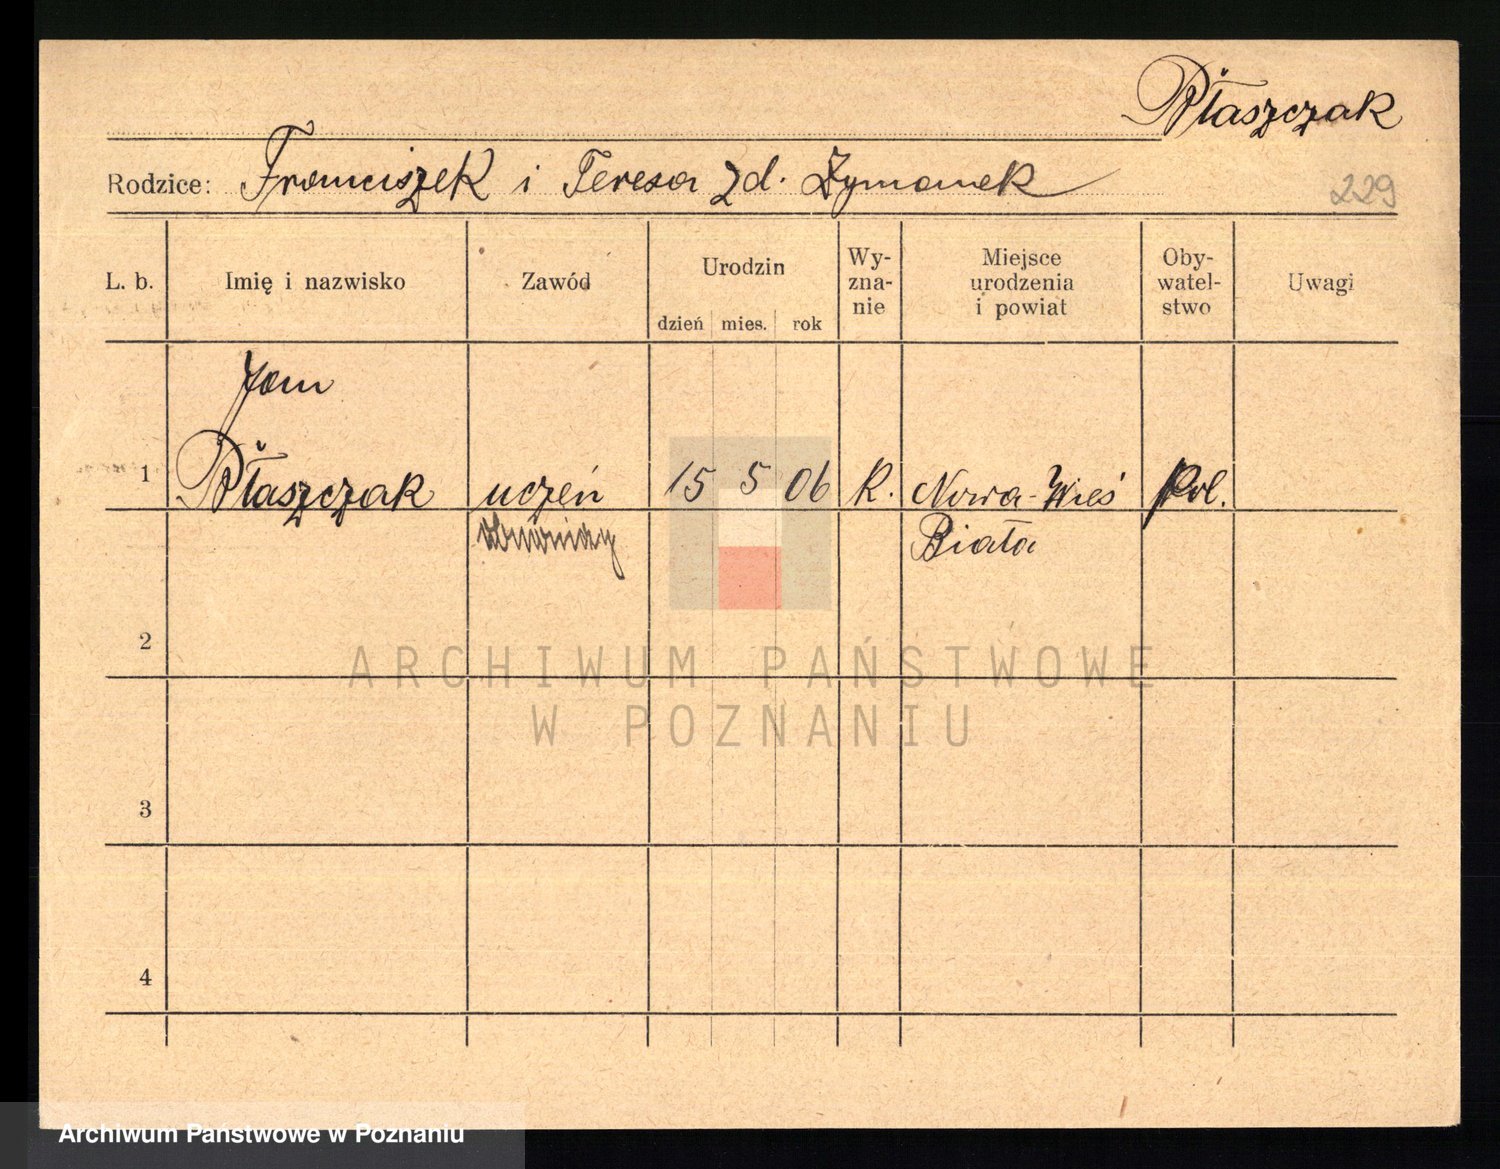 Płaszczak
Rodzice: Franciszek i Teresa zd. Szymanek
229
L. b. Imię i nazwisko Zawód Urodzin dzień mies. rok Wy-zna-nie Miejsce urodzenia i powiat Oby-watel-stwo Uwagi
Jan
1 Płaszczak uczeń 15 5 06 k. Nowa-Wieś Pol.
Biała
2
ARCHIWUM PAŃSTWOWE
W POZNANIU
3
4
Archiwum Państwowe w Poznaniu